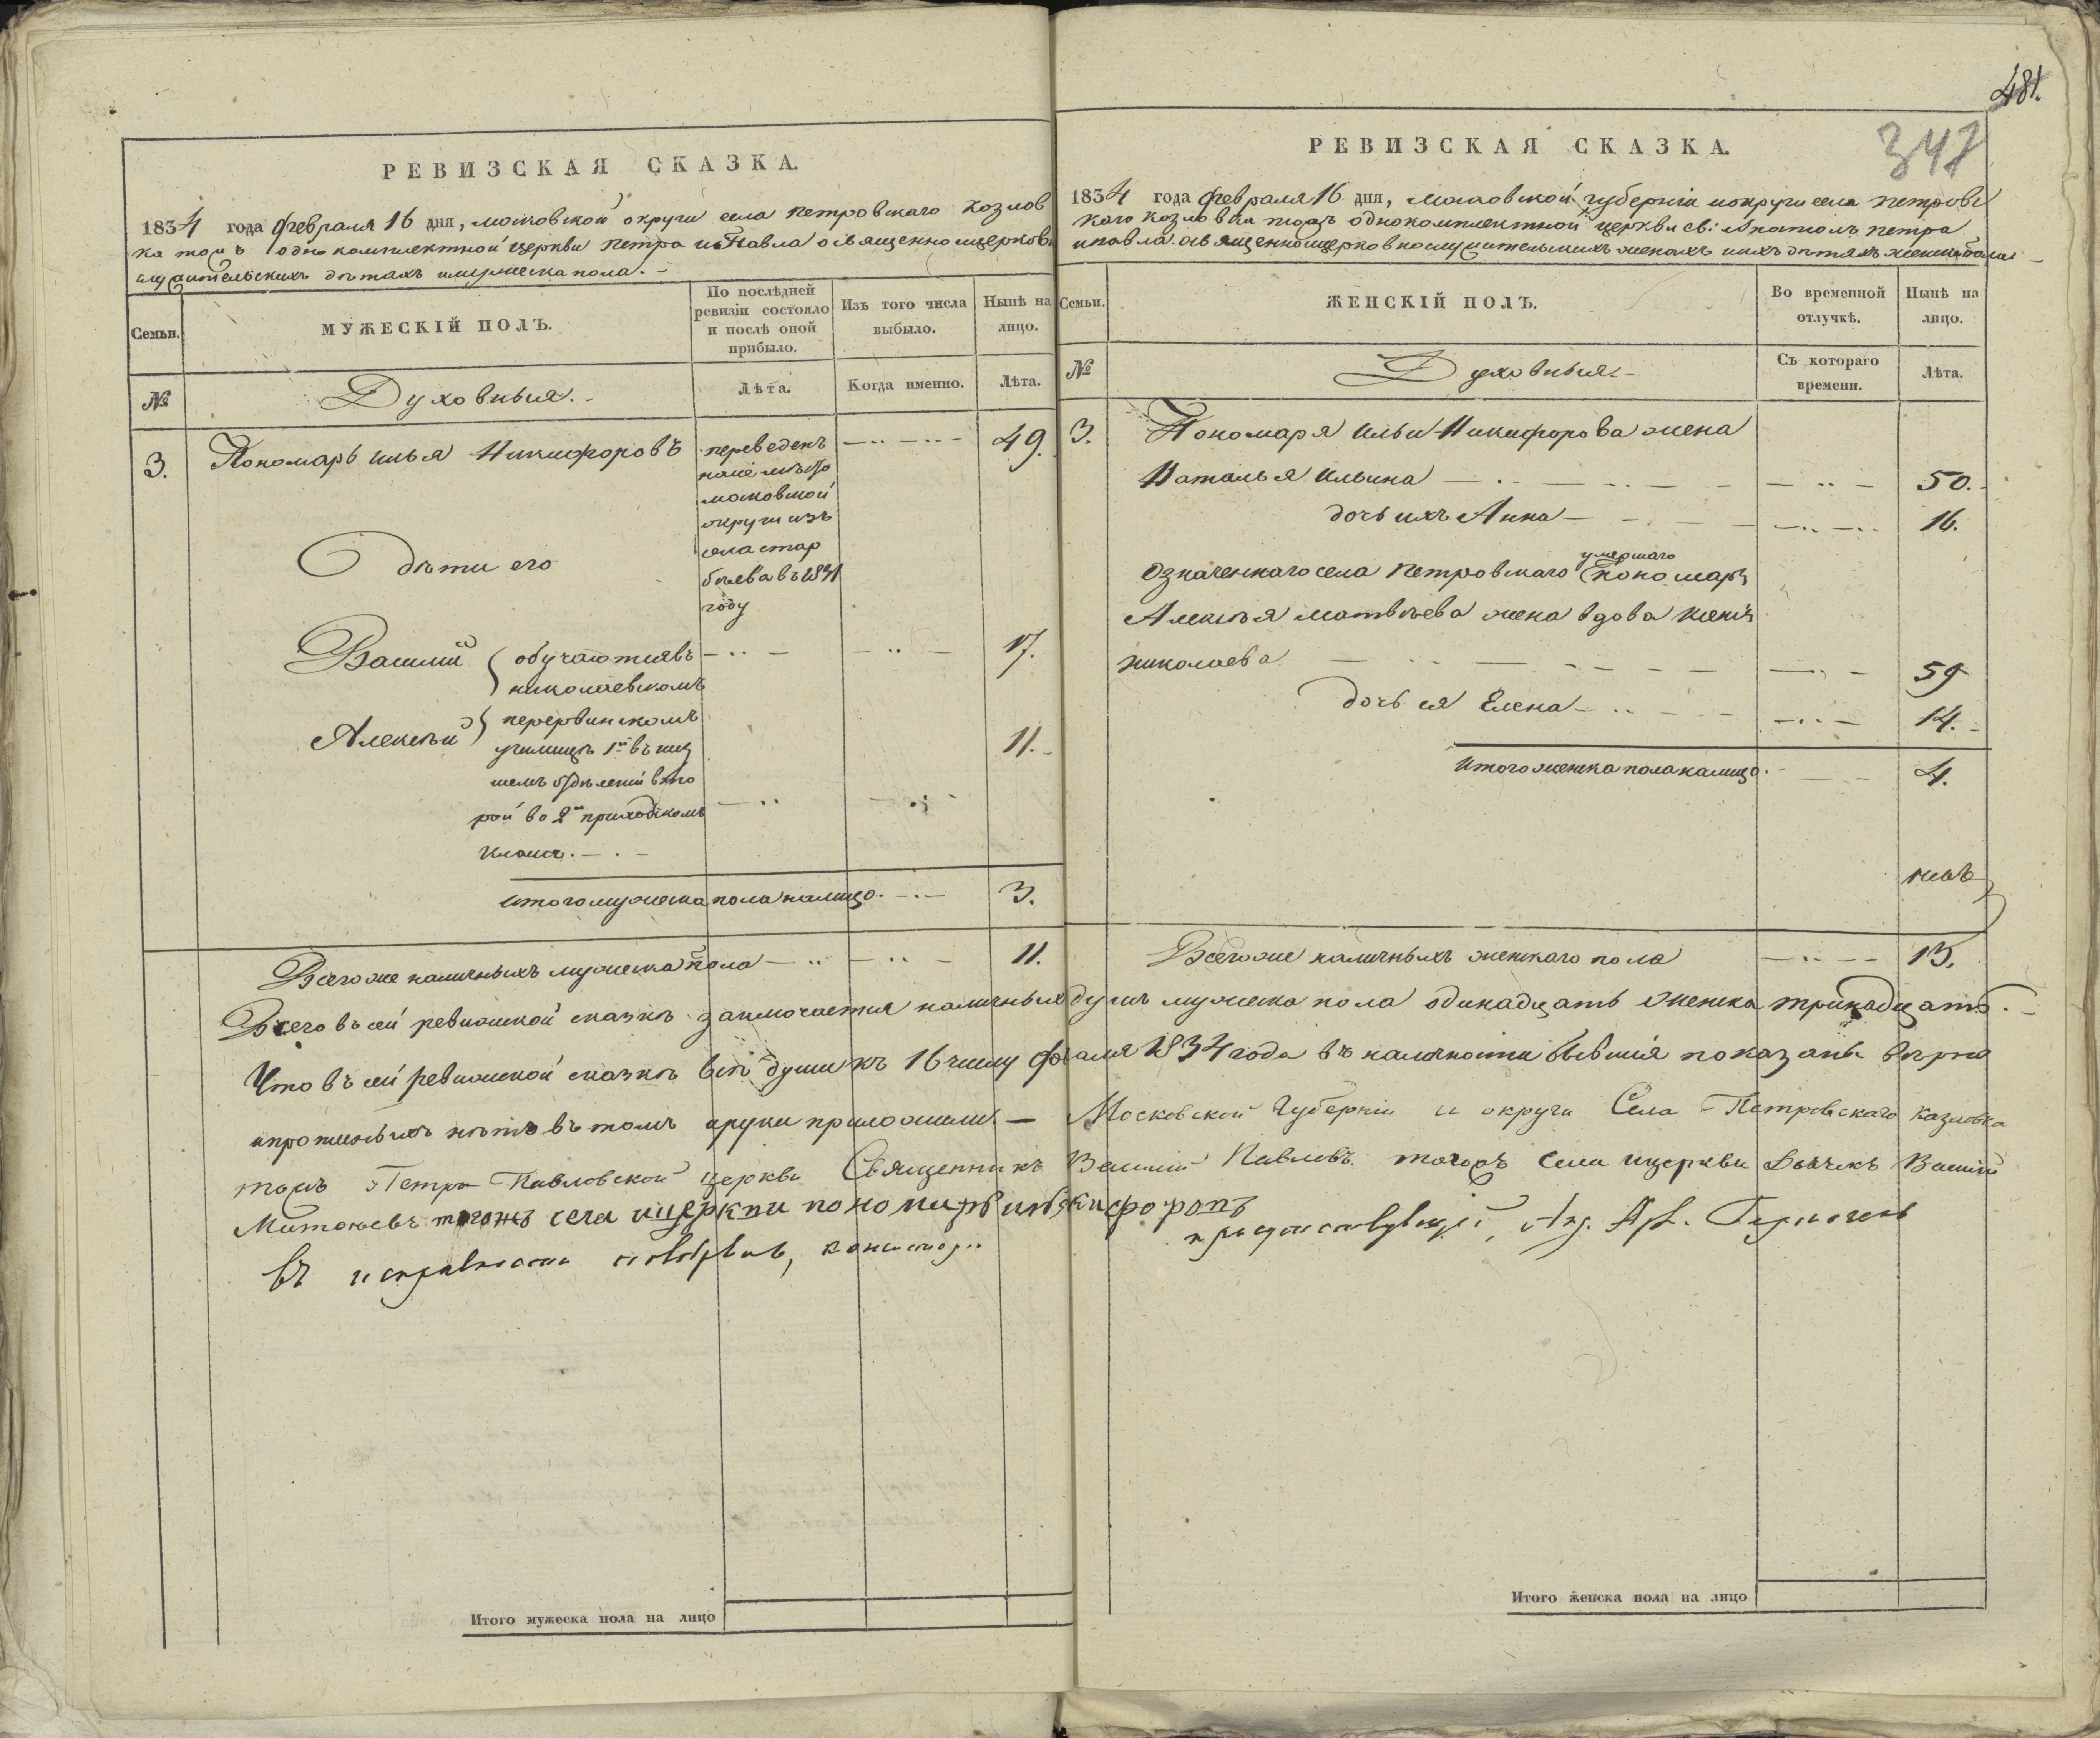 РЕВИЗСКАЯ СКАЗКА.
1834 года февраля 16 дня, московской округи села петровскаго козлов
ка тожъ однокомплектной церкви петра и Павла о священноцерковно
служительскихъ детяхъ мужеска пола. -
Семьи.
МУЖЕСКІЙ ПОЛЪ.
По послѣдней ревизіи состояло и послѣ оной прибыло.
Изъ того числа выбыло.
Нынѣ на лицо.
№
Духовныя.
Лѣта.
Когда именно.
Лѣта.
3. Пономарь илья Никифоровъ
переведенъ
на сіе место
московской
округи изъ
села стар
беева въ 1831
году
49.
дети его
Василий
обучаются въ
николаевскомъ
17.
Алексей
перервинскомъ
училище 1й въ низ
шемъ отделеніи вто
рой во 2м приходскомъ
классе.
11.
итого мужеска пола налицо. 3.
Всего же наличныхъ мужеска пола 11.
481.
347
РЕВИЗСКАЯ СКАЗКА.
1834 года февраля 16 дня, московской губерніи и округи села петровс
каго козловка тожъ однокомплектной церкви св: Апостолъ петра
и павла о священноцерковнослужительскихъ женахъ и ихъ детяхъ женска пола
Семьи.
ЖЕНСКІЙ ПОЛЪ.
Во временной отлучкѣ.
Нынѣ на лицо.
№
Духовныя
Съ котораго времени.
Лѣта.
3. Пономаря ильи Никифорова жена
Наталья Ильина 50.
дочь ихъ Анна 16.
умершаго
означеннаго села петровскаго пономаря
Алексея матвеева жена вдова
николаева 59
дочь ея Елена 14.
итого женска пола налицо. 4.
Всего же наличныхъ женскаго пола 13.
Всего въ сей ревизской сказке заключается наличныхъ душъ мужеска пола одинадцать женска тринадцать. -
Что въ сей ревизской сказке все души къ 16 числу февраля 1834 года въ наличности бывшія показаны верно
и прописныхъ нетъ въ томъ и руки приложили. — Московской Губерніи и округи Села Петровскаго Казловка
тожъ Петро Павловской церкви Священникъ Василій Павловъ. тогожъ села и церкви Дьячекъ Василій
Матвеевъ тогожъ села и церкви пономарь илья никифоровъ
Въ исправности
присутствующій,
Итого мужеска пола на лицо
Итого женска пола на лицо